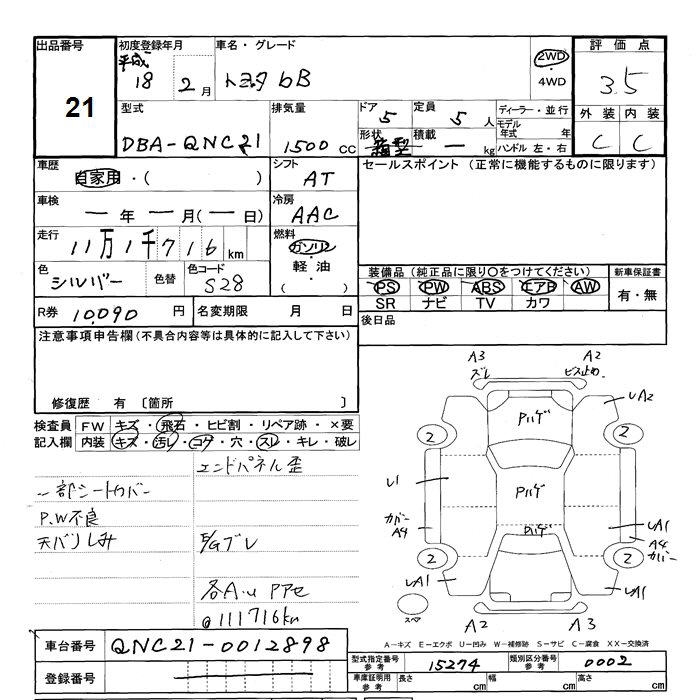 出品番号 初度登録年月 車名・グレード 評価点
21 平成 18 2月 トヨタ bB 2WD ・ 4WD 3.5
型式 排気量 ドア 5 定員 5人 ディーラー・並行 外装 内装
DBA-QNC21 1500cc 形状 箱型 積載 ー kg モデル年式 年 C C
ハンドル 左・右
車歴 シフト セールスポイント (正常に機能するものに限ります)
自家用・( ) AT
車検 冷房
ー年ー月(ー日) AAC
走行 燃料
11万1千716km ガソリン
・
軽油
( )
色 色替 色コード 装備品 (純正品に限り○をつけてください) 新車保証書
シルバー S28 PS PW ABS エアB AW 有・無
SR ナビ TV カワ
R券 10,090 円 名変期限 月 日 後日品
注意事項申告欄(不具合内容等は具体的に記入して下さい)
修復歴 有 〔箇所 〕
検査員 FW キズ・飛石・ヒビ割・リペア跡・×要
記入欄 内装 キズ・汚レ・コゲ・穴・スレ・キレ・破レ
エンドパネル歪
一部シートカバー
P.W不良
天バリしみ E/Gブレ
各A・U Pアセ
@111716km
A3 ズレ A2 ビス止め
UA2
Pハゲ
2 2
U1 Pハゲ
カバーA4 Pハゲ UA1
A4 カバー
2 2
UA1 UA1
スペア
A2 A3
A－キズ E－エクボ U－凹み W－補修跡 S－サビ C－腐食 XX－交換済
車台番号 QNC21-0012898
登録番号
型式指定番号 参考 15274 類別区分番号 参考 0002
車庫証明用 参考 長さ cm 幅 cm 高さ cm